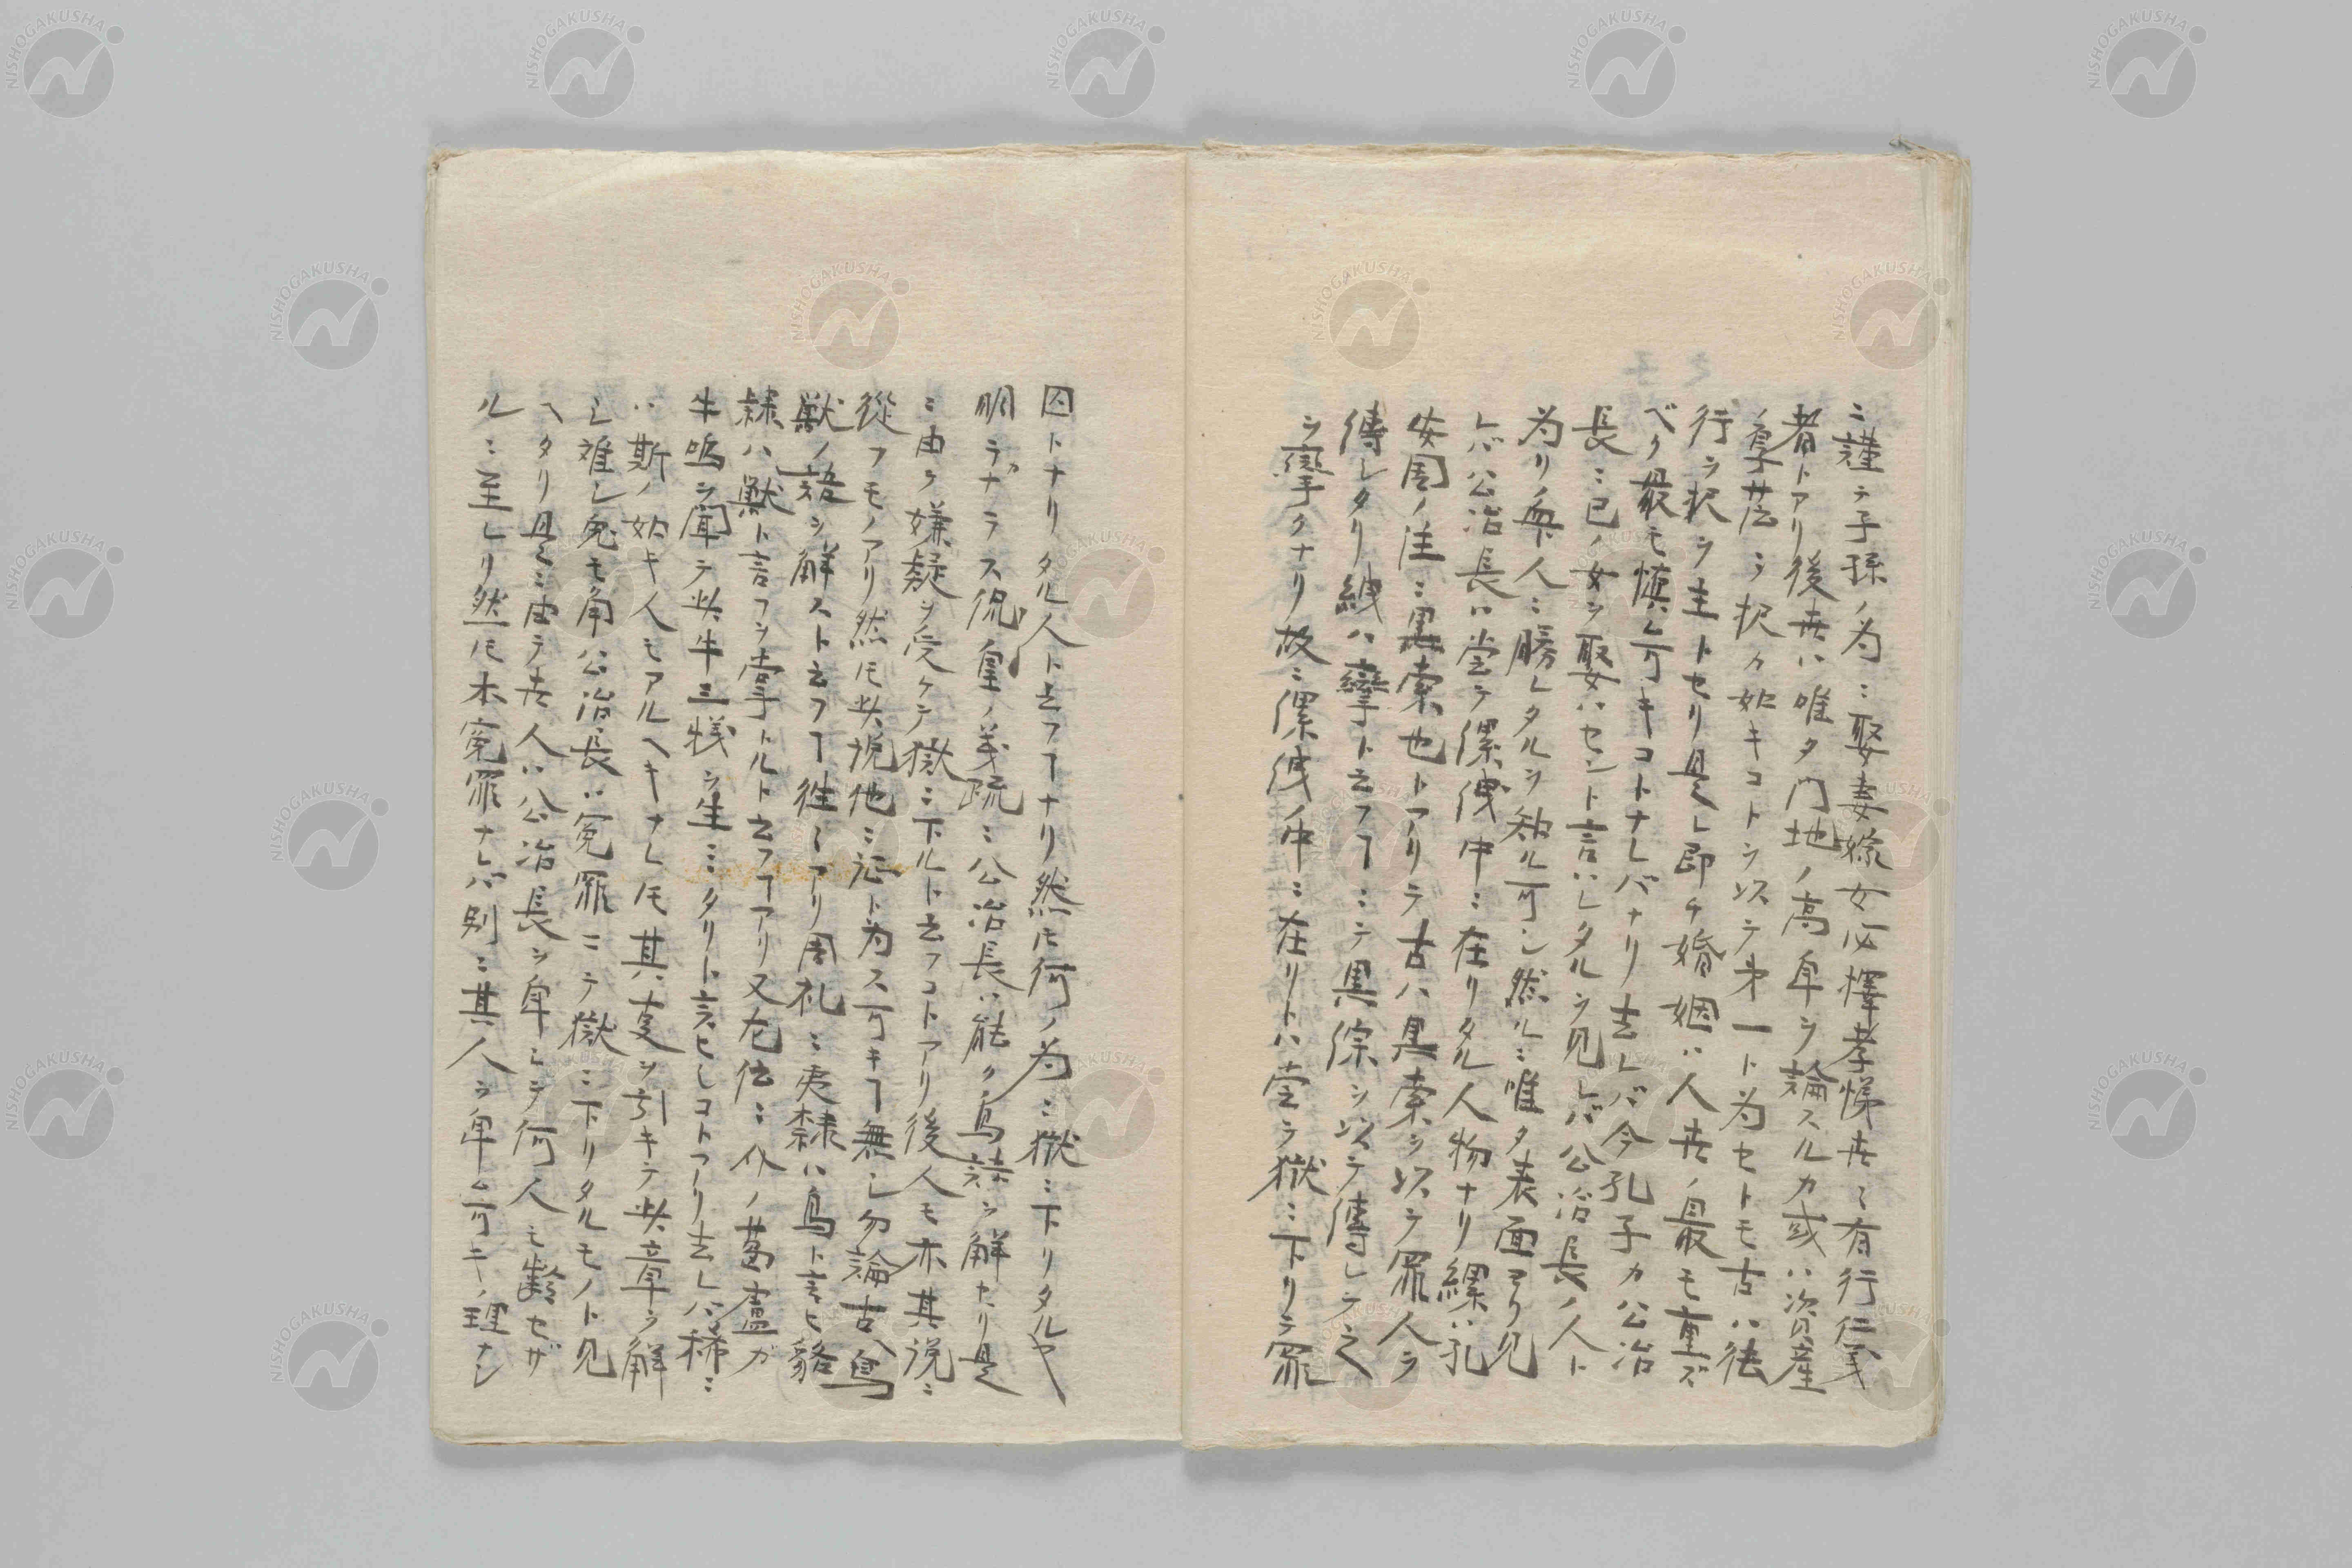 ニ謹テ子孫ノ為ニ娶妻嫁女必擇孝悌世々有行仁義
者トアリ後世ハ唯タ門地ノ高卑ヲ論スルカ或ハ資産
ノ厚薄ヲ択カ如キコトヲ以テ第一ト為セトモ古ハ徳
行ヲ択ヲ主トセリ是レ即チ婚姻ハ人世ノ最モ重ズ
ベク最モ慎ム可キコトナレバナリ去レバ今孔子カ公冶
長ニ己ノ女ヲ娶ハセント言ハレタルヲ見レバ公冶長ノ人ト
為リノ無人ニ勝レタルヲ知ル可シ然ルニ唯タ表面ヨリ見
レバ公冶長ハ嘗テ縲絏中ニ在リタル人物ナリ縲ハ孔
安国ノ注ニ黒索也トアリテ古ハ黒索ヲ以テ罪人ヲ
縛シタリ絏ハ攣ト云フヿニテ黒索ヲ以テ縛シテ之
ヲ攣クナリ故ニ縲絏ノ中ニ在リトハ嘗テ獄ニ下リテ罪
囚トナリタル人ト云フヿナリ然ﾓ何ノ為ニ獄ニ下リタルヤ
明ラカナラス侃皇ノ義疏ニ公冶長ハ能ク鳥語ヲ解セリ是
ニ由テ嫌疑ヲ受ケテ獄ニ下ルト云フコトアリ後人モ亦其説ニ
従フモノアリ然ﾓ此説他ニ証ト為ス可キヿ無シ勿論古ハ鳥
獣ノ語ヲ解スト云フヿ往々アリ周礼ニ夷隷ハ鳥ト言ヒ貉
隷ハ獣ト言フヲ掌トルト云フヿアリ又左伝ニ介ノ葛盧ガ
牛鳴ヲ聞テ此牛三犠ヲ生ミタリト言ヒシコトアリ去レバ稀ニ
ハ斯ノ如キ人モアルヘキナレﾓ其ハ事ヲ引キテ此章ヲ解
シ難シ兎モ角公冶長ハ冤罪ニテ獄ニ下リタルモノト見
ヘタリ是ニ由テ世人ハ公冶長ヲ卑シテ何人モ齢セザ
ルニ至レリ然ﾓ本冤罪ナレバ別ニ其人ヲ卑ム可キノ理ナシ
NISHOGAKUSHA